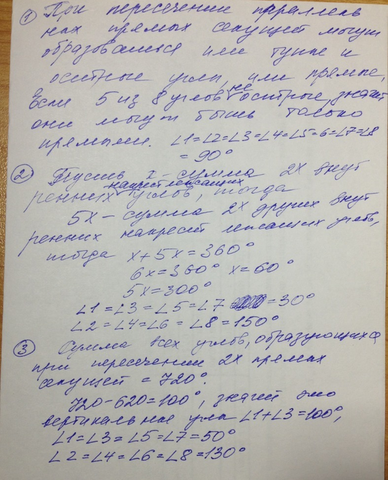 ① При пересечении параллель
ных прямых секущей могут
образоваться или тупые и
острые углы, или прямые,
Если 5 из 8 углов не острые, значит
они могут быть только
прямыми. ∠1=∠2=∠3=∠4=∠5=6=∠7=∠8
= 90°
② Пусть x - сумма 2х внут
ренних накрест лежащих углов, тогда
5x - сумма 2х других внут
ренних накрест лежащих углов,
тогда x+5x=360°
6x=360° x=60°
5x=300°
∠1=∠3=∠5=∠7 =30°
∠2=∠4=∠6=∠8=150°
③ Сумма всех углов, образующихся
при пересечении 2х прямых
секущей = 720°.
720-620=100°, значит это
вертикальные угла ∠1+∠3=100°,
∠1=∠3=∠5=∠7=50°
∠2=∠4=∠6=∠8=130°